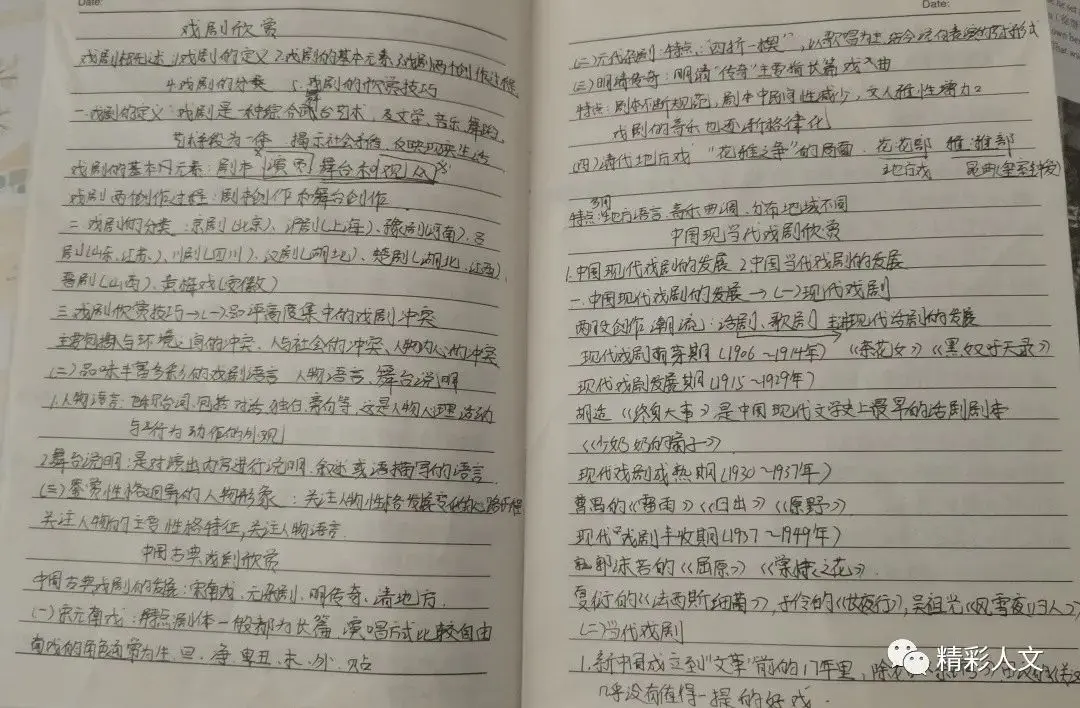 Date:
戏剧欣赏
戏剧概述 1戏剧的定义 2戏剧的基本元素 3戏剧两个创作过程
4.戏剧的分类 5.戏剧的欣赏技巧
一.戏剧的定义:戏剧是一种综合舞台艺术,及文学、音乐、舞蹈
艺术手段为一体 揭示社会矛盾,反映现实生活
戏剧的基本四元素:剧本 演员 舞台和观众
戏剧两创作过程:剧本创作和舞台创作
二.戏剧的分类:京剧(北京)、沪剧(上海)、豫剧(河南)、吕
剧(山东、江苏、)、川剧(四川)、汉剧(湖北)、楚剧(湖北、江西)、
晋剧(山西)、黄梅戏(安徽)
三戏剧欣赏技巧→(一)品评高度集中的戏剧冲突
主要包括人与环境之间的冲突、人与社会的冲突、人物内心的冲突
(二)品味丰富多彩的戏剧语言 人物语言、舞台说明
1.人物语言:也称台词,包括对话 独白、旁白等,这是人物心理活动
与行为动作的外观
2舞台说明:是对演出内容进行说明、叙述或描写的语言
(三)鉴赏性格迥异的人物形象:关注人物性格发展变化的心路历程
关注人物的主要性格特征,关注人物语言
中国古典戏剧欣赏
中国古典戏剧的发展:宋南戏、元杂剧、明传奇、清地方.
(一)宋元南戏:特点剧体一般都为长篇 演唱方式比较自由
南戏的角色通常为生.旦.净.丑.末.外.贴
Date:
(二)元代杂剧:特点:"四折一楔",以歌唱为主 结合说白表演的形式
(三)明清传奇:明清"传奇"主要指长篇戏曲
特点:剧本不断规范,剧本中民间性减少,文人雅性增加。
戏剧的音乐也逐渐格律化
(四)清代地方戏 "花雅之争"的局面. 花:花部 雅:雅部
地方戏 昆曲
特点:地方语言、音乐曲调、分布地域不同
中国现当代戏剧欣赏
1.中国现代戏剧的发展 2中国当代戏剧的发展
一.中国现代戏剧的发展→(一)现代戏剧
两股创作潮流:话剧、歌剧 主推现代话剧的发展
现代戏剧萌芽期(1906~1914年) 《茶花女》《黑奴吁天录》
现代戏剧发展期(1915~1929年)
胡适《终身大事》是中国现代文学史上最早的话剧剧本
《少奶奶的扇子》
现代戏剧成熟期(1930~1937年)
曹禺的《雷雨》《日出》《原野》
现代戏剧丰收期(1937~1949年)
郭沫若的《屈原》《棠棣之花》.
夏衍的《法西斯细菌》,于伶的《夜行》,吴祖光《风雪夜归人》
(二)当代戏剧
1.新中国成立到"文革"前的17年里,除
几乎没有值得一提的好戏.
精彩人文